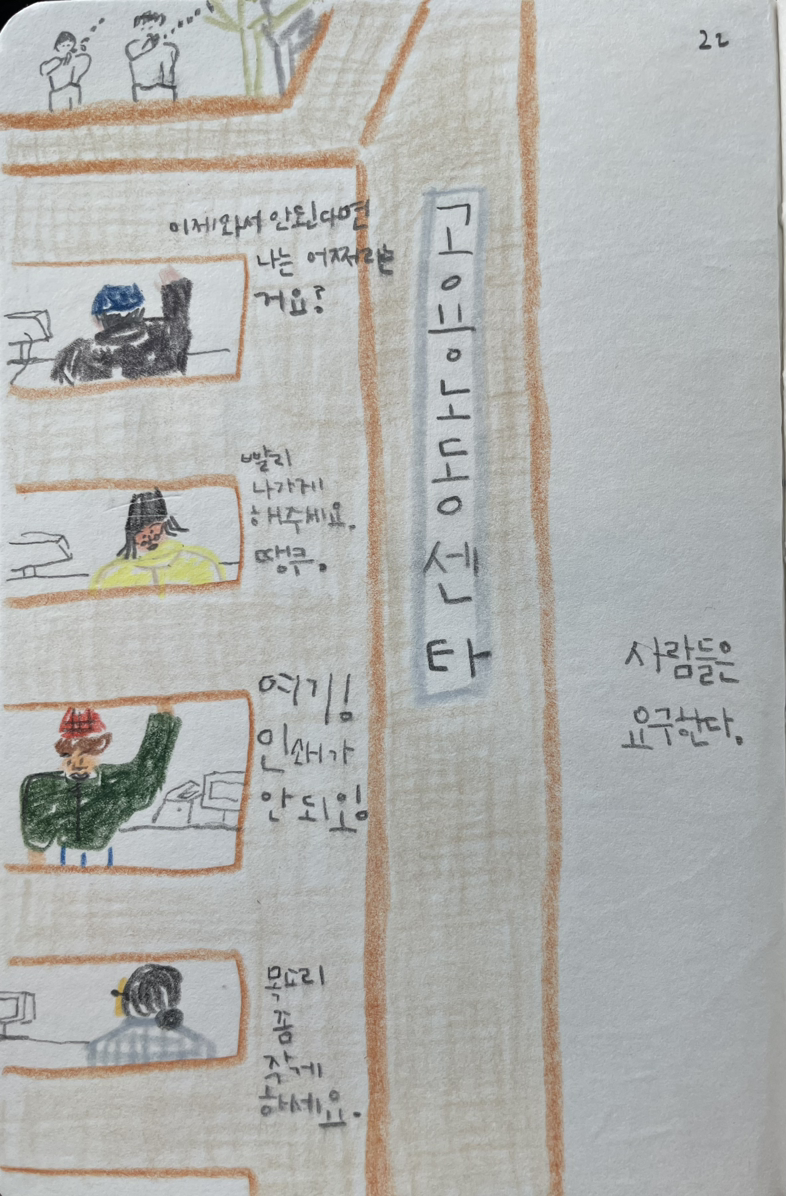 22
이제와서 안된다면
나는 어쩌라는
거요?
고용노동센타
빨리
나가게
해주세요.
땡큐.
여기!
인쇄가
안되잉
사람들은
요구한다.
목소리
좀
작게
하세요.